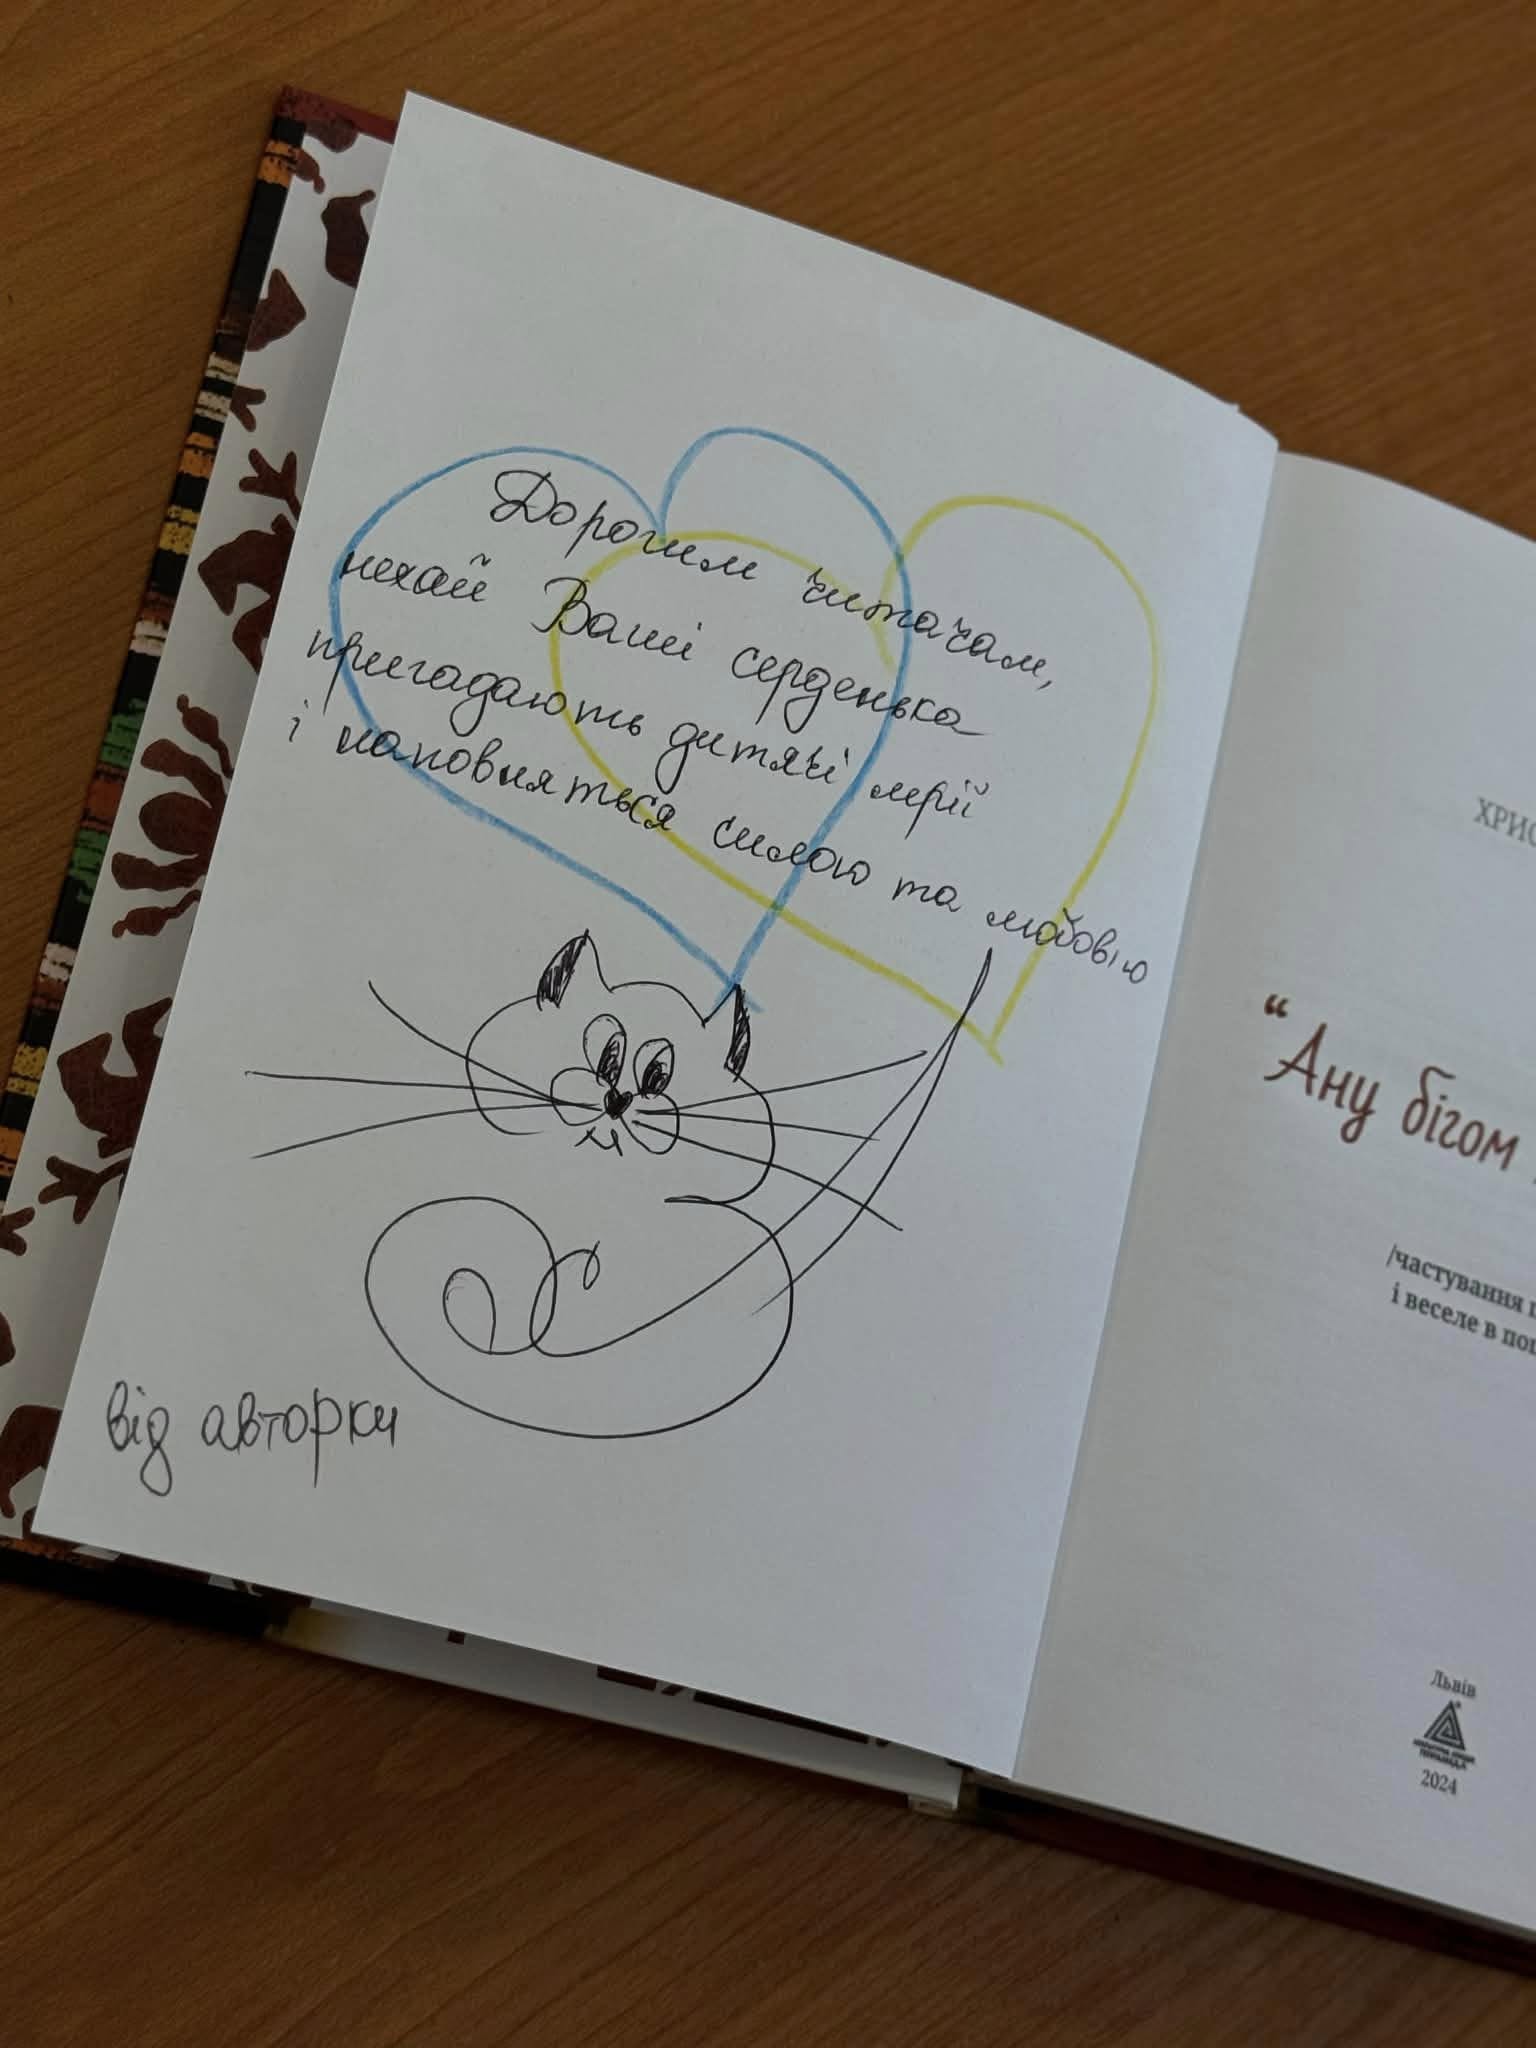 Дорогим читачам,
нехай Ваші серденька
пригадають дитячі мрії
і наповняться силою та любовію
від авторки
ХРИС
“Ану бігом
/частування п
і веселе в пог
Львів
2024